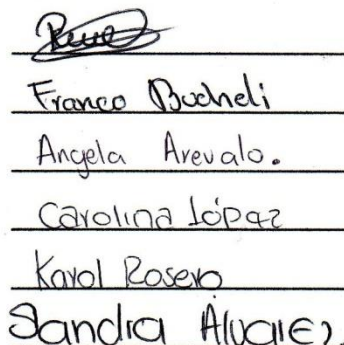 Franco Bucheli
Angela Arevalo.
Carolina López
Karol Rosero
Sandra Álvarez.